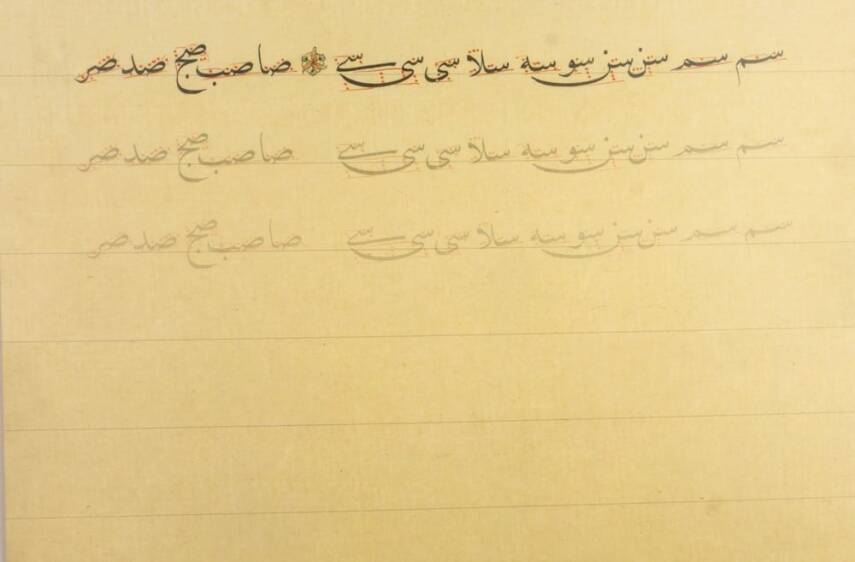 سم سم سم سن سن سو سه سلا سی سی سے صا صب صج صد صر
سم سم سم سن سن سو سه سلا سی سی سے صا صب صج صد صر
سم سم سم سن سن سو سه سلا سی سی سے صا صب صج صد صر